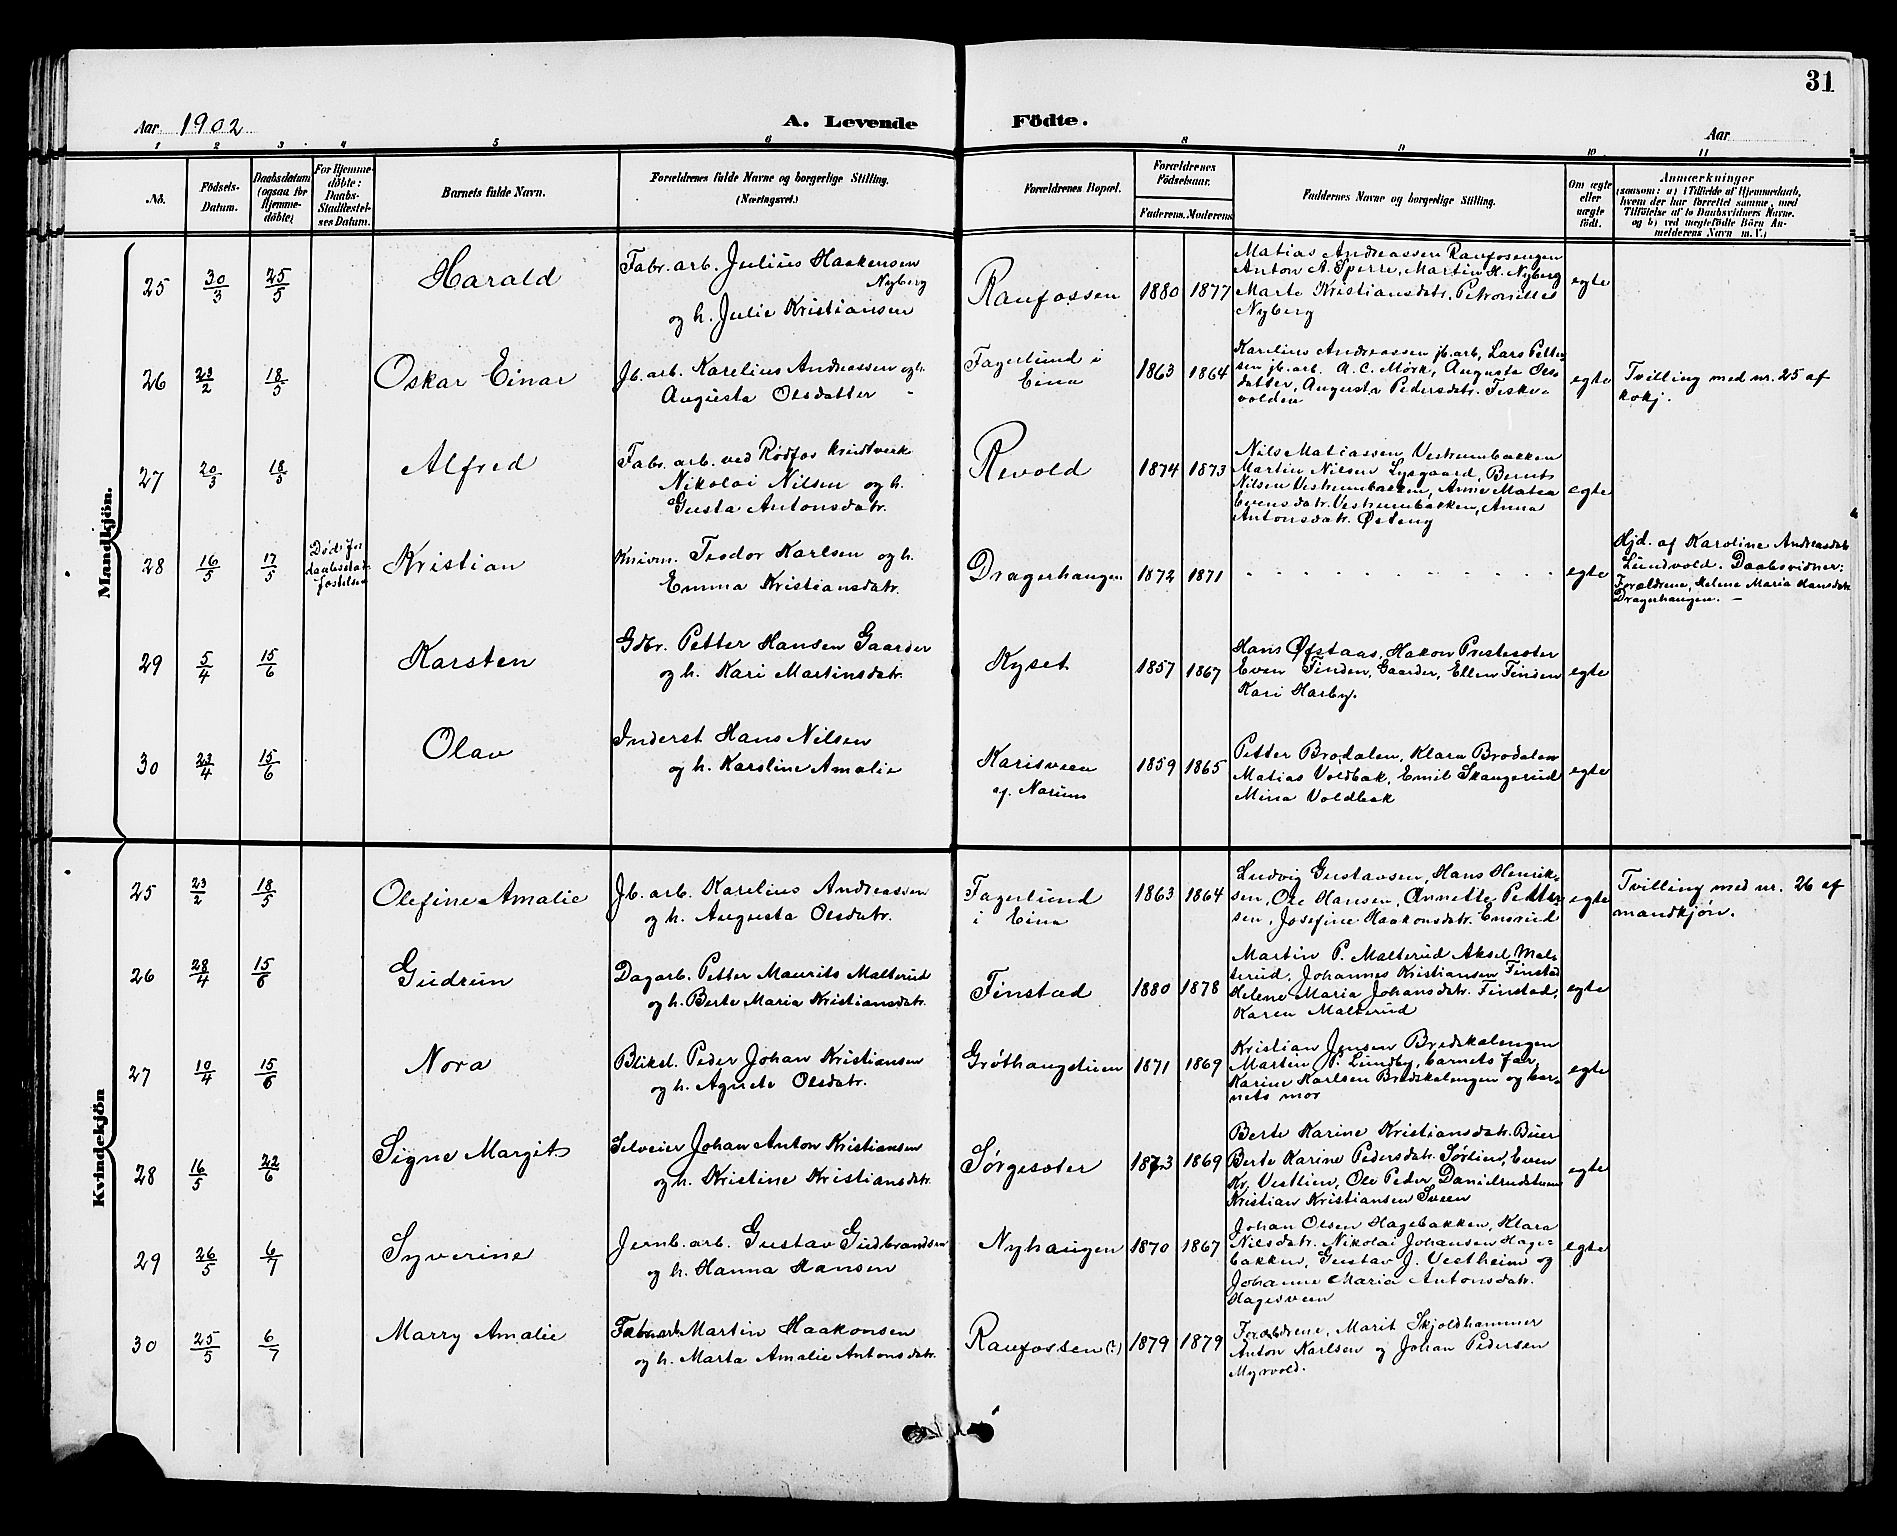 31
Aar 1902
A. Levende Födte.
Aar
1 2 3 4 5 6 8 9 10 11
No. Födsels-Datum. Daabsdatum (ogsaa for Hjemme-döbte) For Hjemme-döbte: Daabs-Stadfæstel-ses Datum. Barnets fulde Navn. Forældrenes fulde Navne og borgerlige Stilling. (Næringsvei.) Forældrenes Bopæl. Forældrenes Födselsaar. Faderens. Moderens. Faddernes Navne og borgerlige Stilling. Om ægte eller uægte födt. Anmærkninger (saasom: a) i Tilfælde af Hjemmedaab, hvem der har forrettet samme, med Tilföielse af to Daabsvidners Navne, og b) ved uægtefödte Börn An-melderens Navn m. V.)
Mandkjön.
25 30/3 25/5 Harald
Fabr. arb. Julius Haakensen
Nyberg
og h. Julie Kristiansen
Raufossen 1880 1877
Matias Andreassen Raufosengen
Anton A. Sperre, Martin H. Nyberg
Marte Kristiansdatr. Petronille
Nyberg
egte
26 23/2 18/5 Oskar Einar
Jb. arb. Karelius Andreassen og h.
Augusta Olsdatter
Fagerlund i
Eina
1863 1864
Karelius Andreassen jb. arb, Lars Petter-
sen jb. arb. A. C. Mörk, Augusta Ols-
datter, Augusta Pedersdatr. Fiske-
volden
egte
Tvilling med nr. 25 af
kvkj.
27 20/3 18/5 Alfred
Fabr. arb. ved Rødfos krudtverk
Nikolai Nilsen og h.
Gusta Antonsdatr.
Revold 1874 1873
Nils Matiassen Vestrumbakken
Martin Nilsen Lysgaard, Bernt
Nilsen Vestrumbakken, Anne Matea
Evensdatr. Vestrumbakken, Anna
Antonsdatr. Østeng
egte
28 16/5 17/5
Død før
daabsstad-
fæstelse
Kristian
Teodor Karlsen og h.
Emma Kristiansdatr.
Dragerhaugen 1872 1871
egte
Hjd. af Karoline Andreasdatr
Lundvold. Daabsvidner:
Forældrene, Helene Maria Hansdatr
Dragerhaugen. —
29 5/4 15/6 Karsten
Gdbr. Petter Hansen Gaarder
og h. Kari Martinsdatr.
Kyset 1857 1867
Hans Øfstaas, Hakon Prestesæter
Even Finden, Gaarder, Ellen Finden
Kari Harby.
egte
30 23/4 15/6 Olav
Inderst Hans Nilsen
og h. Karoline Amalie
Karisveen
ej. Narum
1859 1865
Petter Brodalen, Klara Brodalen
Matias Voldbak, Emil Skangerud
Mina Voldbak
egte
Kvindekjön
25 23/2 18/5 Olefine Amalie
Jb. arb. Karelius Andreassen
og h. Augusta Olsdatr.
Fagerlund
i Eina
1863 1864
Ludvig Gustavsen, Hans Henrik-
sen, Ole Hansen, Annette Petter-
sen, Josefine Haakonsdatr. Ensrud
egte
Tvilling med nr. 26 af
mandkjøn.
26 28/4 15/6 Gudrun
Dagarb. Petter Maurits Malterud
og h. Berte Maria Kristiansdatr.
Finstad 1880 1878
Martin P. Malterud Aksel Mal-
terud, Johannes Kristiansen Finstad
Helene Maria Johansdatr. Finstad,
Karen Malterud
egte
27 10/4 15/6 Nora
Bliksl. Peder Johan Kristiansen
og h. Agnete Olsdatr.
1871 1869
Kristian Jensen Bredskalengen
Martin N. Lundby, barnets far,
Karine Karlsen Bredskalengen og bar-
nets mor
egte
28 16/5 22/6 Signe Margit
Selveier Johan Anton Kristiansen
og h. Kristine Kristiansdatr.
Sørgesæter 1873 1869
Berte Karine Kristiansdatr. Buer
Berte Karine Pedersdatr. Sørlien, Even
Kr. Vestlien, Ole Peder Danielsrudstuen
Kristian Kristiansen Sveen
egte
29 26/5 6/7 Syverine
Jernb. arb. Gustav Gudbrandsen
og h. Hanna Hansen
Nyhaugen 1870 1867
Johan Olsen Hagebakken, Klara
Nilsdatr. Nikolai Johansen Hage-
bakken, Gustav J. Vestheim og
Johanne Maria Antonsdatr.
Hagesveen
egte
30 25/5 6/7 Marry Amalie
Fabr. arb Martin Haakonsen
og h. Marta Amalie Antonsdatr.
Raufossen (?) 1879 1879
Forældrene, Marit Skjoldhammer
Anton Karlsen og Johan Pedersen
Myrvold.